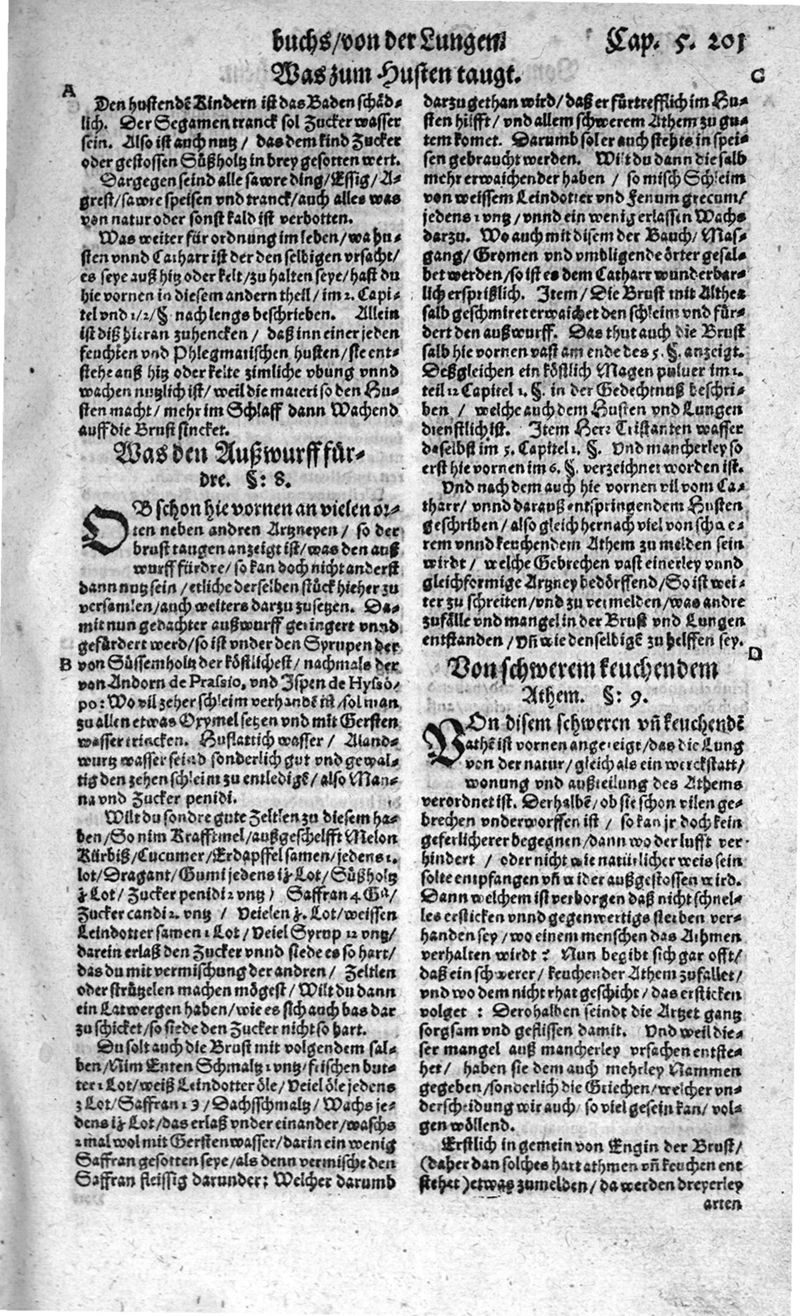 buchs/von der Lungen Cap. 5. 201
Was zum Husten taugt.
A
Den hustendẽ Kindern ist das Baden schäd-
lich. Der Segamen tranck sol Zucker wasser
sein. Also ist auch nutz/ das dem kind Zucker
oder gestossen Süßholtz in brey gesotten wert.
Dargegen seind alle sawre ding/Essig/A-
grest/sawre speisen vnd tranck/auch alles was
von natur oder sonst kald ist verbotten.
Was weiter für ordnung im leben/wa hu-
sten vnnd Catharr ist der den selbigen vrsacht/
es seye auß hitz oder kelt/zu halten seye/hast du
hie vornen in diesem andern theil/im 2. Capi-
tel vnd 1/2/§. nach lengs beschrieben. Allein
ist diß hieran zuhencken/ daß inn einer jeden
feuchten vnd Phlegmatischen husten/sie ent-
stehe auß hitz oder kelte zimliche vbung vnnd
wachen nutzlich ist/weil die materi so den Hu-
sten macht/mehr im Schlaff dann Wachend
auff die Brust sincket.
Was den Außwurff für-
dre. §: 8.
OB schon hie vornen an vielen or-
ten neben andren Artzneyen/ so der
brust taugen anzeigt ist/was den auß
wurff fürdre/so kan doch nicht anderst
dann nutz sein/etliche derselben stück hieher zu
versamlen/auch weiters darzu zusetzen. Da-
mit nun gedachter außwurff geringert vnnd
gefürdert werd/so ist vnder den Syrupen der
B
von Süssemholtz der köstlichest/nachmals der
von Andorn de Prassio, vnd Ispen de Hysso-
po: Wo vil zeher schleim verhandẽ ist/sol man
zu allen etwas Oxymel setzen vnd mit Gersten
wasser trincken. Huflattich wasser/ Aland-
wurtz wasser seind sonderlich gut vnd gewal-
tig den zehen schleim zu entledigẽ/also Man-
na vnd Zucker penidi.
Wilt du sondre gute Zeltlen zu diesem ha-
ben/So nim Krafftmel/außgeschelfft Melon
Kürbiß/Cucumer/Erdapffel samen/jedens 1.
lot/Dragant/Gumi jedens Lot/Süßholtz
Lot/ Zucker penidi 2 vntz/ Saffran 4 Gᵃ/
Zucker candi 2. vntz/ Veielen Lot/weissen
Leindotter samen 1 Lot/Veiel Syrup 12 vntz/
darein erlaß den Zucker vnnd siede es so hart/
das du mit vermischung der andren/ Zeltlen
oder strützelen machen mögest/Wilt du dann
ein Latwergen haben/wie es sich auch bas dar
zu schicket/so siede den Zucker nicht so hart.
Du solt auch die Brust mit volgendem sal-
ben/Nim Enten Schmaltz 1 vntz/frischen but-
ter 1 Lot/weiß Leindotter öle/Veiel öle jedens
3 Lot/Saffran 1 Dachsschmaltz/Wachs je-
dens Lot/das erlaß vnder einander/waschs
2 mal wol mit Gersten wasser/darin ein wenig
Saffran gesotten seye/als denn vermische den
Saffran fleissig darunder: Welcher darumb
C
darzu gethan wird/daß er fürtrefflich im Hu-
sten hilfft/vnd allem schwerem Athem zu gu-
tem komet. Darumb sol er auch stehts in spei-
sen gebraucht werden. Wilt du dann die salb
mehr erwaichender haben/ so misch Schleim
von weissem Leindotter vnd Fenum grecum/
jedens 1 vntz/vnnd ein wenig erlassen Wachs
darzu. Wo auch mit disem der Bauch/Mas-
gang/Gromen vnd vmbligende örter gesal-
bet werden/so ist es dem Catharr wunderbar-
lich ersprißlich. Item/Die Brust mit Althea
salb geschmiret erwaichet den schleim vnd für-
dert den außwurff. Das thut auch die Brust
salb hie vornen vast am ende des 5. §. anzeigt.
Deßgleichen ein köstlich Magen puluer im 1.
teil 12 Capitel 1. §. in der Gedechtnuß beschri-
ben/ welche auch dem Husten vnd Lungen
dienstlich ist. Item Herr Tristanten wasser
daselbst im 5. Capitel 1. §. Vnd mancherley so
erst hie vornen im 6. §. verzeichnet worden ist.
Vnd nach dem auch hie vornen vil vom Ca-
tharr/ vnnd darauß entspringendem Husten
geschriben/also gleich hernach viel von schwe-
rem vnnd keuchendem Athem zu melden sein
wirdt/ welche Gebrechen vast einerley vnnd
gleichformige Artzney bedörffend/So ist wei-
ter zu schreiten/vnd zu vermelden/was andre
zufälle vnd mangel in der Brust vnd Lungen
entstanden/vñ wie denselbigẽ zu helffen sey.
D
Von schwerem keuchendem
Athem. §: 9.
VOn disem schweren vñ keuchendẽ
athẽ ist vornen angezeigt/das die Lung
von der natur/gleich als ein werckstatt/
wonung vnd außteilung des Athems
verordnet ist. Derhalbẽ/ob sie schon vilen ge-
brechen vnderworffen ist/ so kan jr doch kein
geferlicherer begegnen/dann wo der lufft ver-
hindert/ oder nicht wie natürlicher weis sein
solte empfangen vñ wider außgestossen wird.
Dann welchem ist verborgen daß nicht schnel-
les ersticken vnnd gegenwertigs sterben ver-
handen sey/wo einem menschen das Athmen
verhalten wirdt? Nun begibt sich gar offt/
daß ein schwerer/keuchender Athem zufallet/
vnd wo dem nicht rhat geschicht/das ersticken
volget: Derohalben seindt die Artzet gantz
sorgsam vnd geflissen damit. Vnd weil die-
ser mangel auß mancherley vrsachen entste-
het/ haben sie dem auch mehrley Nammen
gegeben/sonderlich die Griechen/welcher vn-
derscheidung wir auch/so viel gesein kan/vol-
gen wöllend.
Erstlich in gemein von Engin der Brust/
(daher dan solches hart athmen vñ keuchen ent
stehet)etwas zumelden/da werden dreyerley
arten